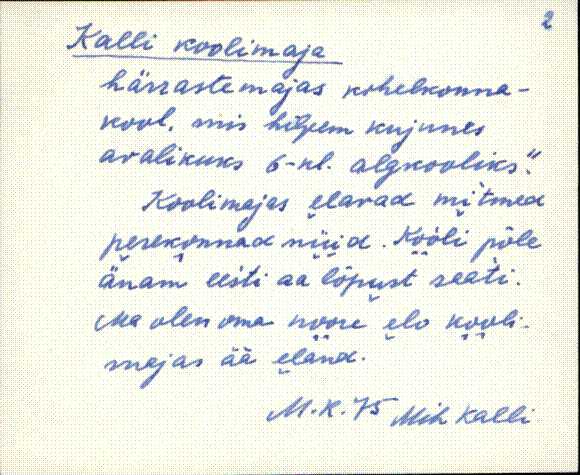 2
Kalli koolimaja
härrastemajas kihelkonna-
kool, mis hiljem kujunes
avalikuks 6-kl. algkooliks."
Koolimajas elavad mitmed
perekonnad nüid. Kooli põle
änam eesti aa lõpust saati.
Ma olen oma noore elo kooli-
majas ää eland.
M.K. 75 Mih Kalli